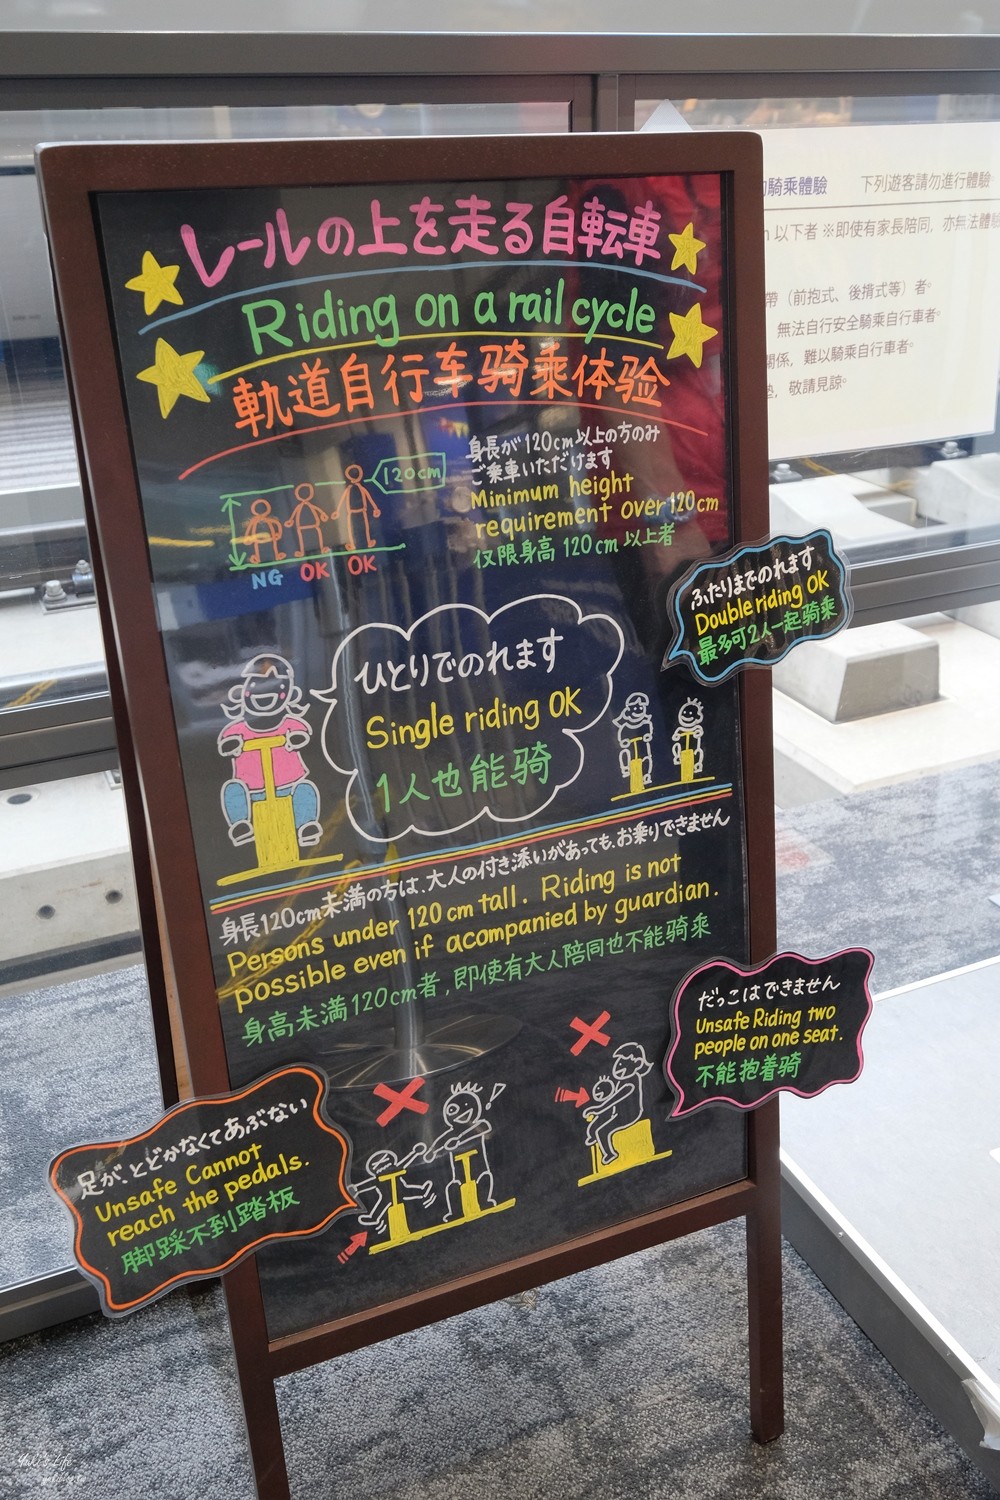 レールの上を走る自転車
Riding on a rail cycle
軌道自行车骑乘体验
120cm
NG OK OK
身長が120cm以上の方のみ
ご乗車いただけます
Minimum height
requirement over 120cm
仅限身高 120cm 以上者
ふたりまでのれます
Double riding OK
最多可2人一起骑乘
ひとりでのれます
Single riding OK
1人也能骑
身長120cm未満の方は、大人の付き添いがあっても、お乗りできません
Persons under 120cm tall. Riding is not
possible even if acompanied by guardian.
身高未満120cm者,即使有大人陪同也不能骑乘
だっこはできません
Unsafe Riding two
people on one seat.
不能抱着骑
足が、とどかなくてあぶない
Unsafe Cannot
reach the pedals.
脚踩不到踏板
騎乘體驗 下列遊客請勿進行體驗
以下者 ※即使有家長陪同,亦無法體驗
帶(前抱式、後揹式等)者。
無法自行安全騎乘自行車者。
關係,難以騎乘自行車者。
敬請見諒。
Yuki's Life